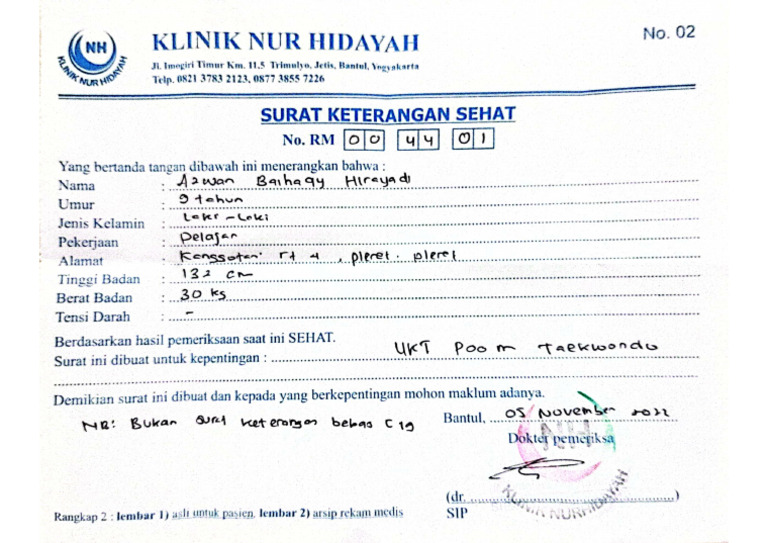 No. 02
NH
KLINIK NUR HIDAYAH
KLINIK NUR HIDAYAH
Jl. Imogiri Timur Km. 11,5 Trimulyo, Jetis, Bantul, Yogyakarta
Telp. 0821 3783 2123, 0877 3855 7226
SURAT KETERANGAN SEHAT
No. RM 00 44 01
Yang bertanda tangan dibawah ini menerangkan bahwa :
Nama : Azwan Baihaqy Hirayadi
Umur : 9 tahun
Jenis Kelamin : Laki-Laki
Pekerjaan : Pelajar
Alamat : Kanggotan rt 4, pleret. pleret
Tinggi Badan : 132 cm
Berat Badan : 30 kg
Tensi Darah : -
Berdasarkan hasil pemeriksaan saat ini SEHAT.
Surat ini dibuat untuk kepentingan : UKT Poom Taekwondo
Demikian surat ini dibuat dan kepada yang berkepentingan mohon maklum adanya.
NB: Bukan surat keterangan bebas C19
Bantul, 05 November 2022
Dokter pemeriksa
NH
KLINIK NUR HIDAYAH
(dr. )
SIP
Rangkap 2 : lembar 1) asli untuk pasien, lembar 2) arsip rekam medis